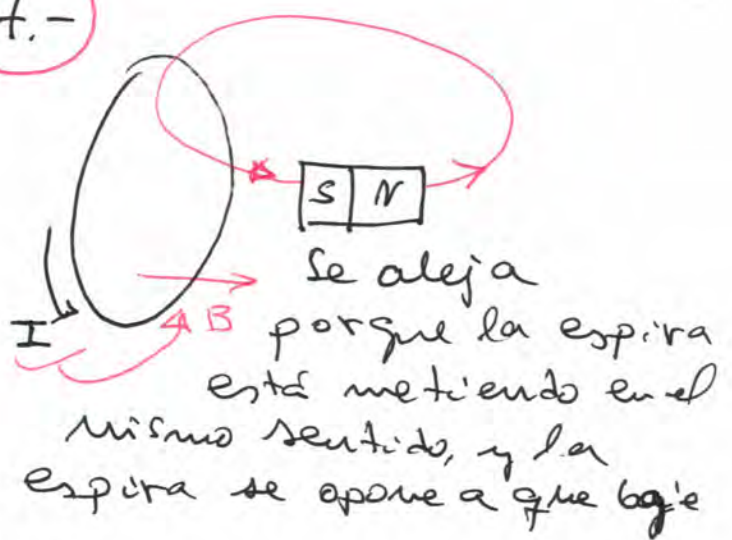 4.-
S N
I
B
Se aleja
porque la espira
está metiendo en el
mismo sentido, y la
espira se opone a que baje